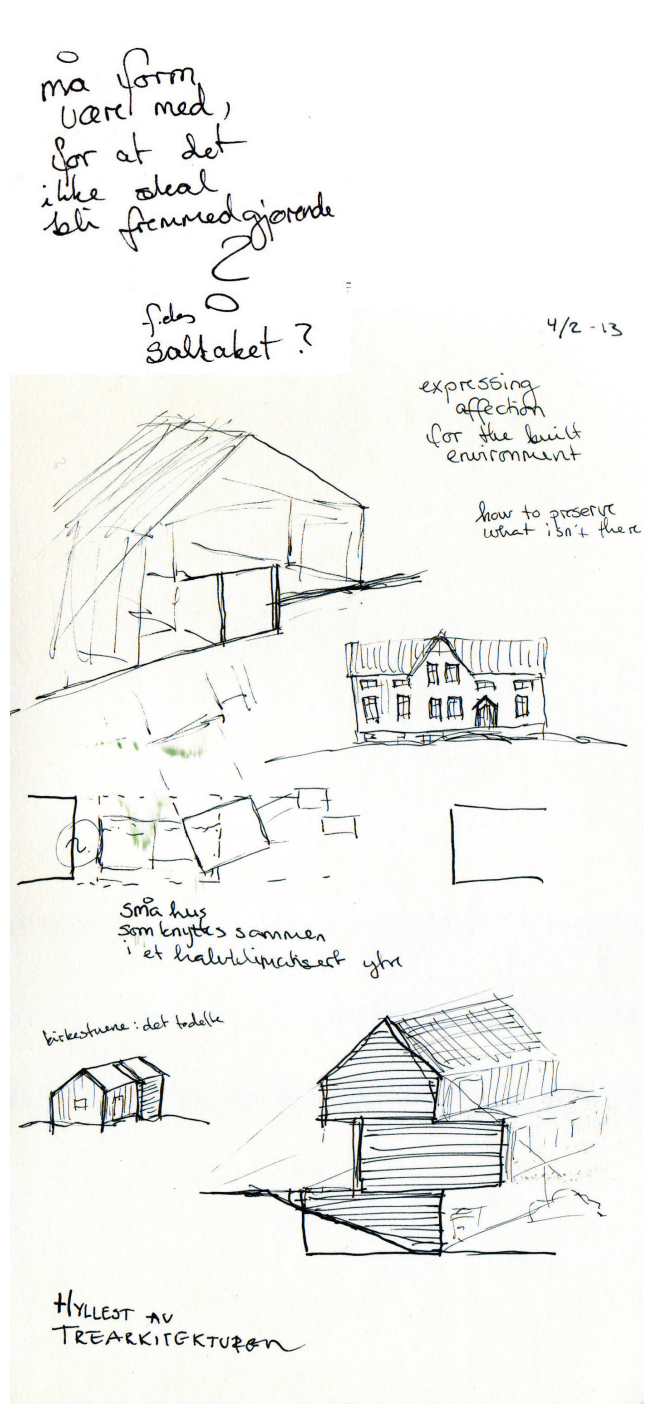 må form
være med,
for at det
ikke skal
bli fremmedgjørende
?
f.eks
saltaket ?
4/2 - 13
expressing
affection
for the built
environment
how to preserve
what isn't there
små hus
som knyttes sammen
i et halvklimatisert ytre
birkestuene : det todelte
HYLLEST AV
TREARKITEKTUREN